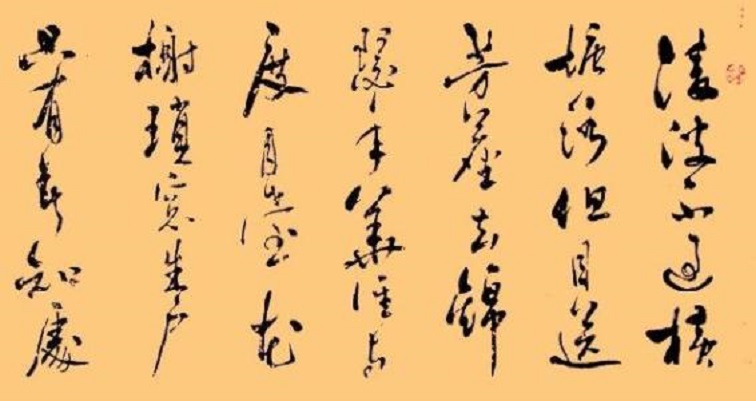 淩波不過横
塘路但目送
芳塵去錦
瑟年華誰与
度月臺花
榭瑣窓朱户
只有春知處